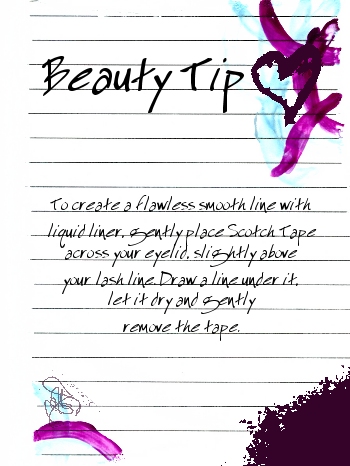 Beauty Tip
To create a flawless smooth line with
liquid liner, gently place Scotch Tape
across your eyelid, slightly above
your lash line. Draw a line under it,
let it dry and gently
remove the tape.